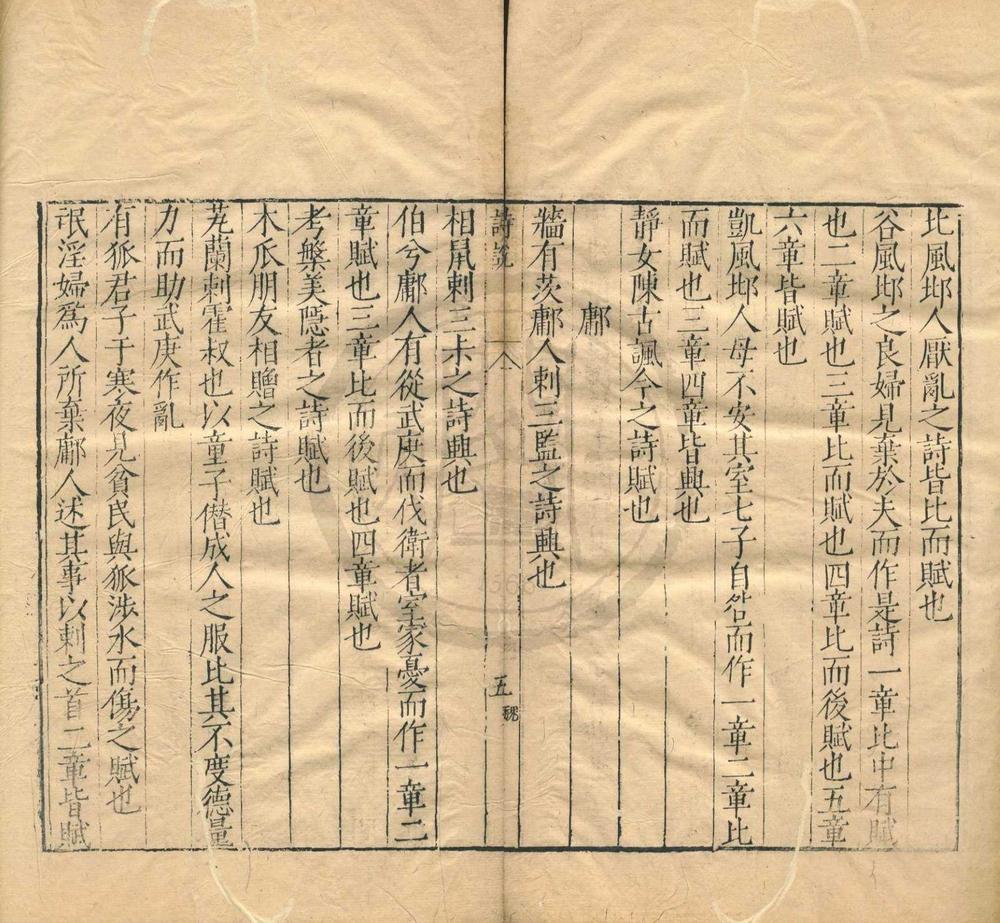 北風邶人厭亂之詩皆比而賦也
谷風邶之良婦見棄於夫而作是詩一章比中有賦
也二章賦也三章比而賦也四章比而後賦也五章
六章皆賦也
凱風邶人母不安其室七子自咎而作一章二章比
而賦也三章四章皆興也
靜女陳古諷今之詩賦也
鄘
牆有茨鄘人刺三監之詩興也
詩說
五
相鼠刺三未之詩興也
伯兮鄘人有從武庚而伐衛者室家憂而作一章二
章賦也三章比而後賦也四章賦也
考槃美隱者之詩賦也
木瓜朋友相贈之詩賦也
芄蘭刺霍叔也以童子僭成人之服比其不度德量
力而助武庚作亂
有狐君子于寒夜見貧民與狐涉水而傷之賦也
氓淫婦爲人所棄鄘人述其事以刺之首二章皆賦